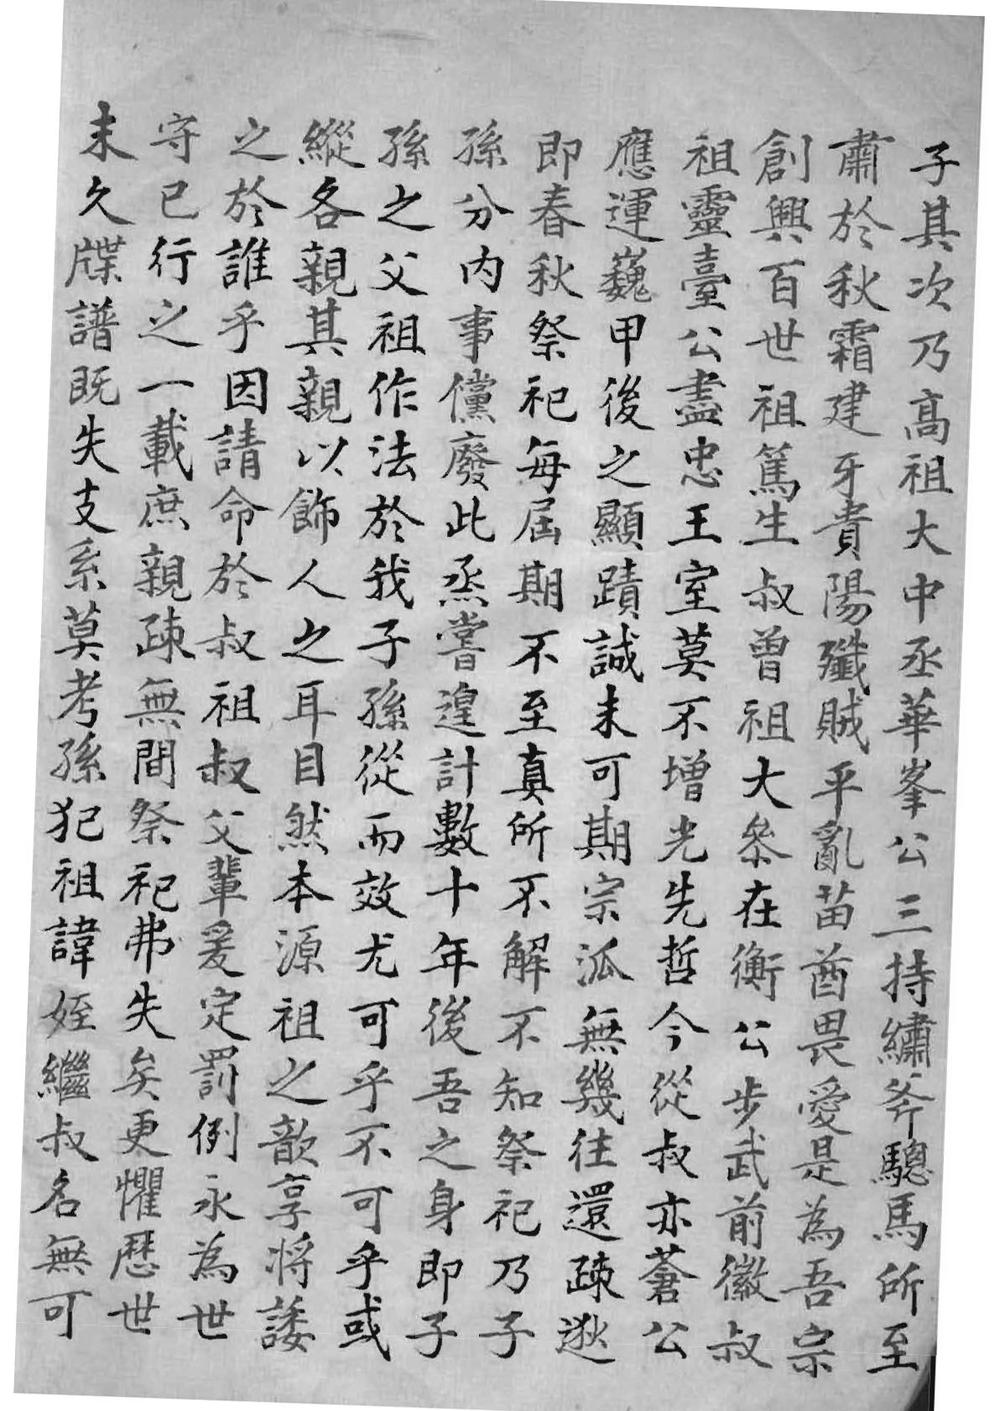 子其次乃高祖大中丞華峯公三持繡斧驄馬所至
肅於秋霜建牙貴陽殲賊平亂苗酋畏愛是為吾宗
創興百世祖篤生叔曾祖大叅在衡公步武前徽叔
祖靈臺公盡忠王室莫不增光先哲今從叔亦蒼公
應運巍甲後之顯蹟誠未可期宗派無幾往還疎逖
即春秋祭祀每屆期不至真所不解不知祭祀乃子
孫分內事儻廢此烝嘗遑計數十年後吾之身即子
孫之父祖作法於我子孫從而效尤可乎不可乎或
縱各親其親以飾人之耳目然本源祖之歆享將諉
之於誰乎因請命於叔祖叔父輩爰定罰例永為世
守已行之一載庶親疎無間祭祀弗失矣更懼歷世
末久牒譜既失支系莫考孫犯祖諱姪繼叔名無可